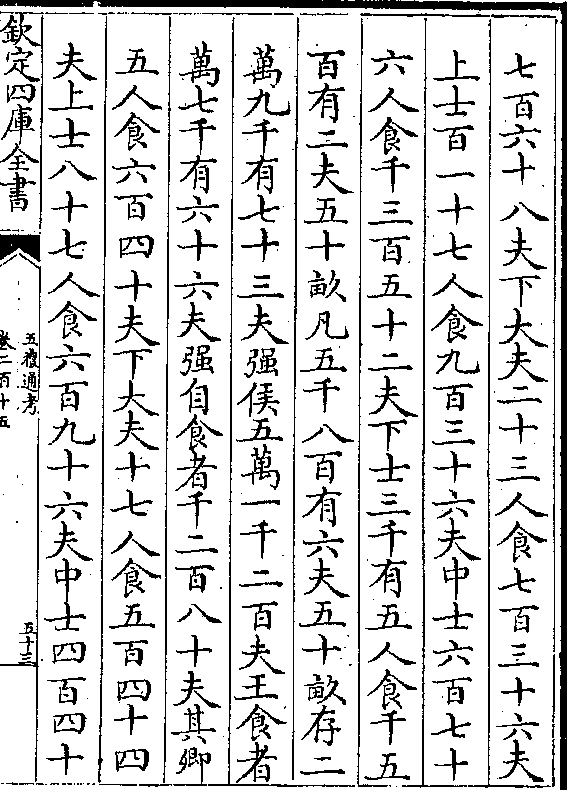 七百六十八夫下大夫二十三人食七百三十六夫
上士百一十七人食九百三十六夫中士六百七十
六人食千三百五十二夫下士三千有五人食千五
百有二夫五十畝凡五千八百有六夫五十畝存二
萬九千有七十三夫强侯五萬一千二百夫王食者
萬七千有六十六夫强自食者千二百八十夫其卿
五人食六百四十夫下大夫十七人食五百四十四
夫上士八十七人食六百九十六夫中士四百四十
欽定四庫全書
五禮通考
卷二百十五
五十三